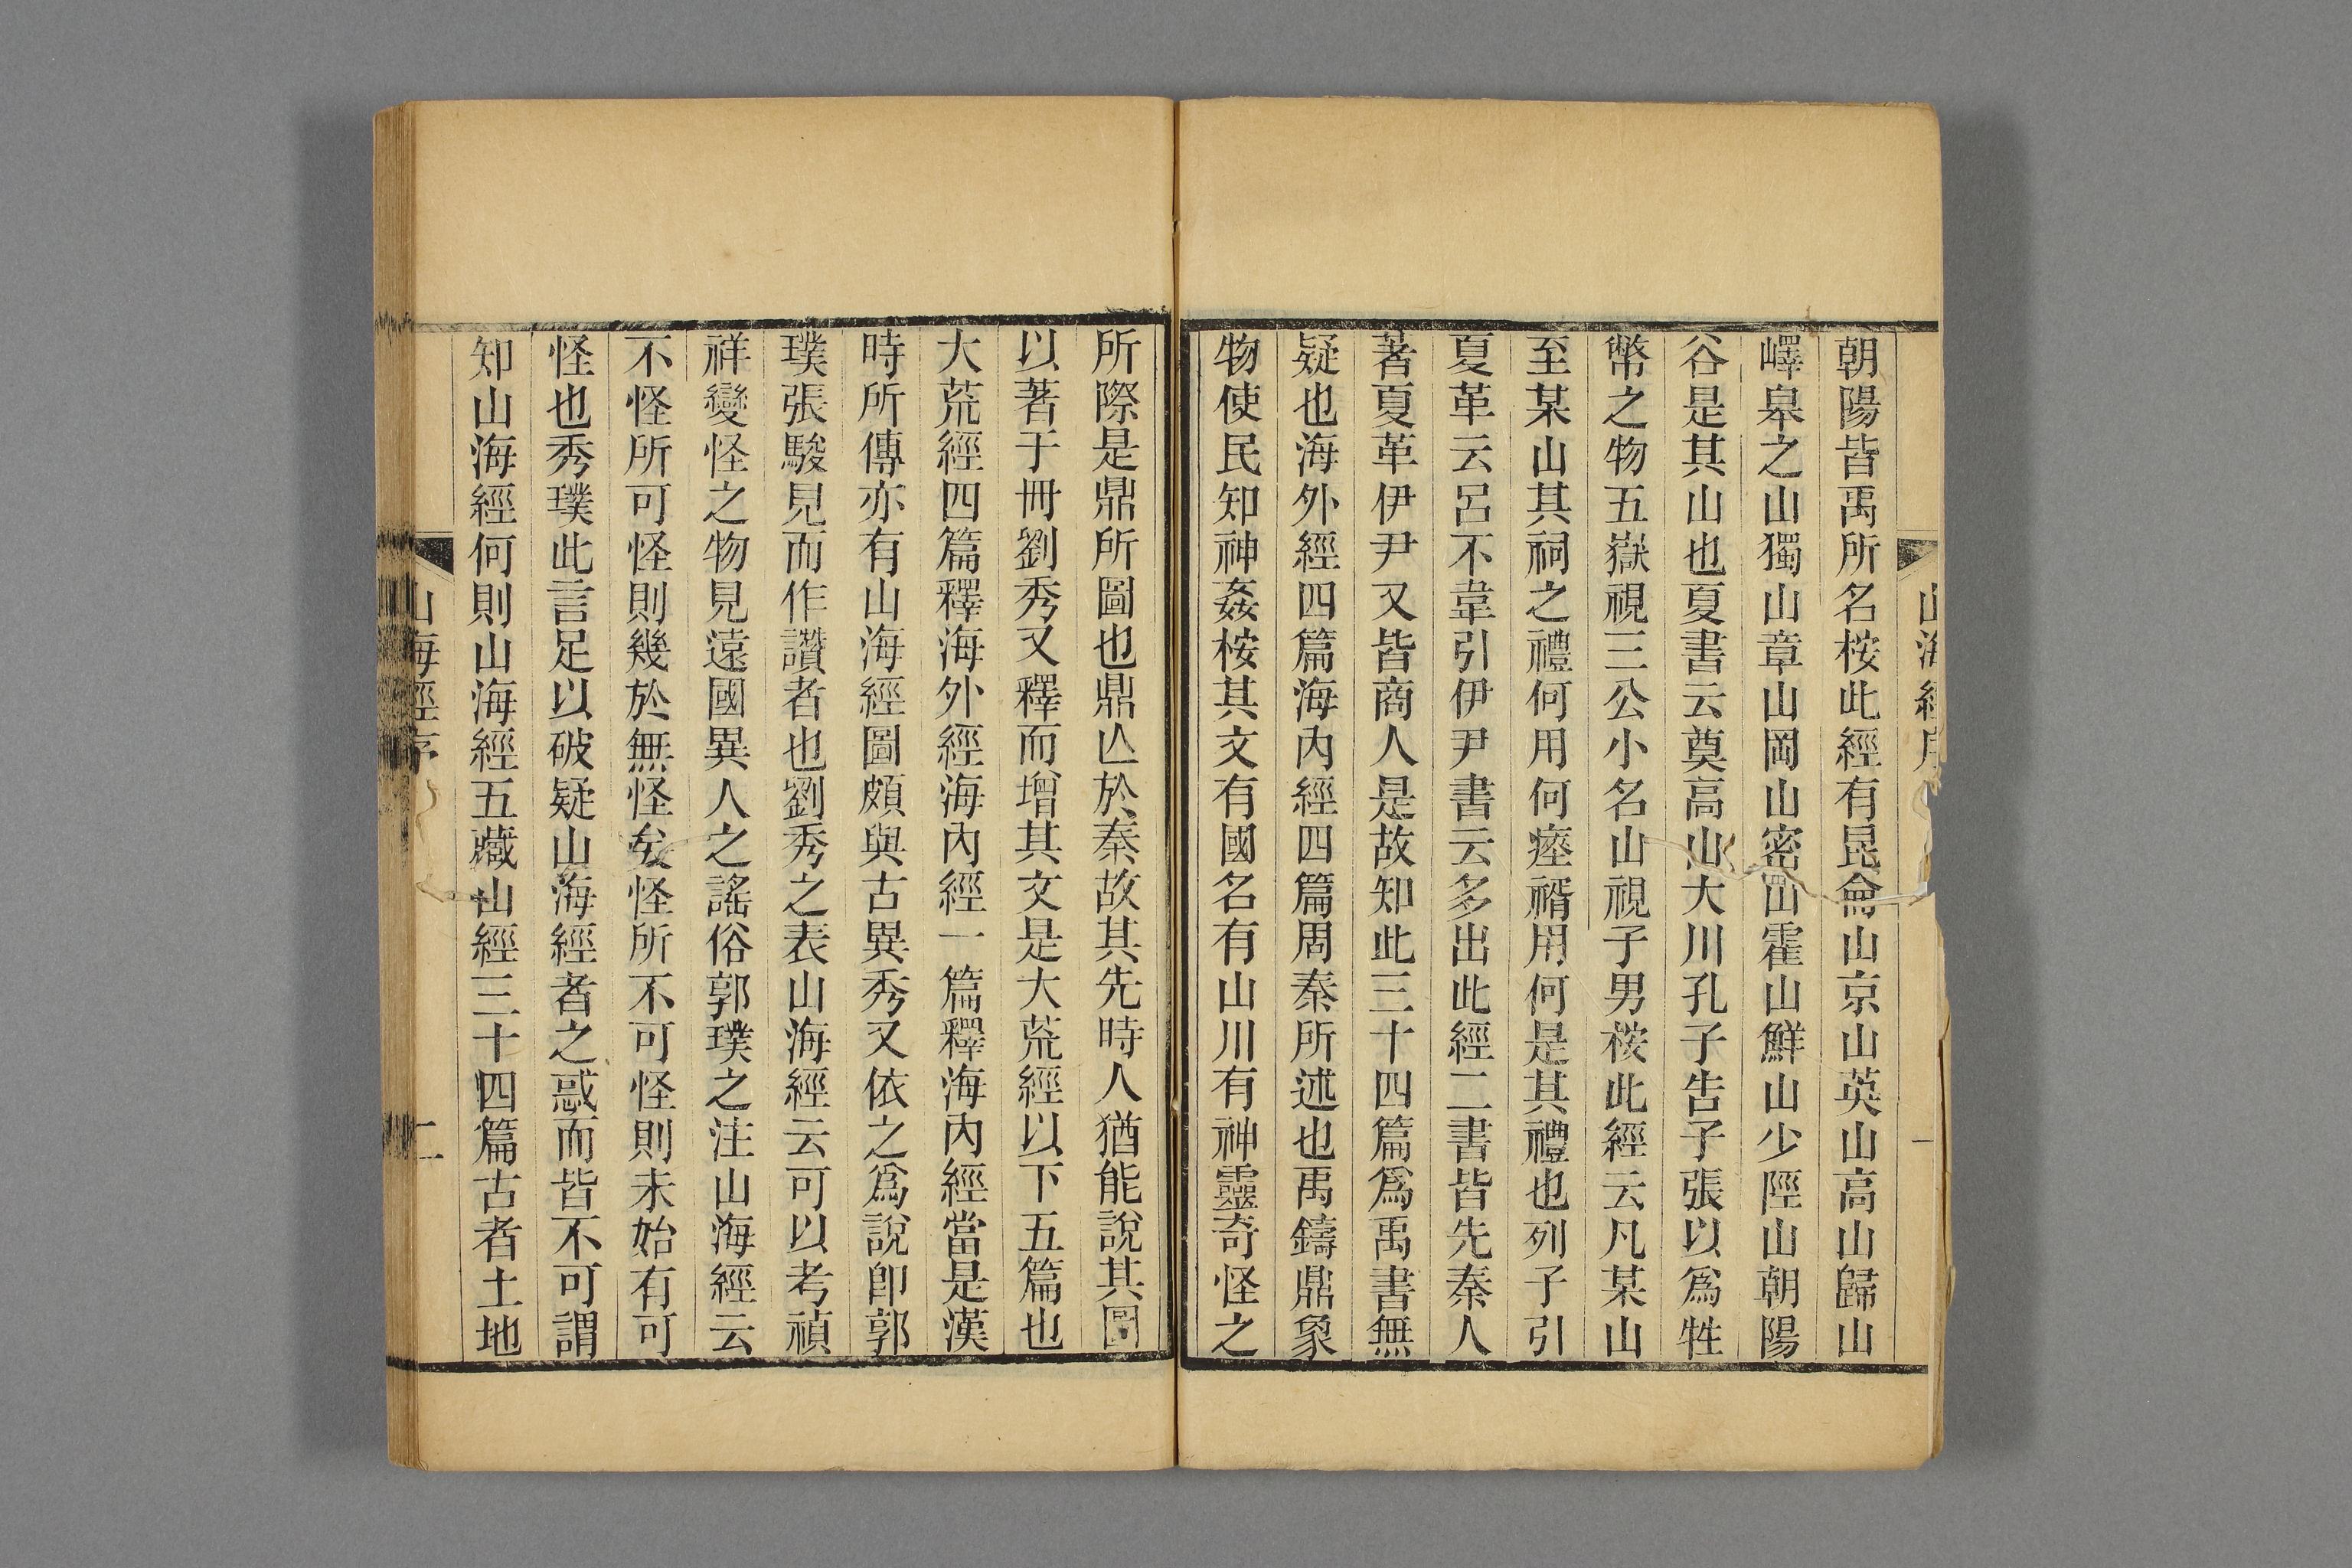 山海經序
一
朝陽皆禹所名桉此經有昆侖山京山英山高山歸山
嶧皋之山獨山章山岡山密山霍山鮮山少陘山朝陽
谷是其山也夏書云奠高山大川孔子告子張以爲牲
幣之物五嶽視三公小名山視子男桉此經云凡某山
至某山其祠之禮何用何瘞糈用何是其禮也列子引
夏革云呂不韋引伊尹書云多出此經二書皆先秦人
著夏革伊尹又皆商人是故知此三十四篇爲禹書無
疑也海外經四篇海內經四篇周秦所述也禹鑄鼎象
物使民知神姦桉其文有國名有山川有神靈奇怪之
所際是鼎所圖也鼎亾於秦故其先時人猶能說其圖
以著于冊劉秀又釋而增其文是大荒經以下五篇也
大荒經四篇釋海外經海內經一篇釋海內經當是漢
時所傳亦有山海經圖頗與古異秀又依之爲說卽郭
璞張駿見而作讚者也劉秀之表山海經云可以考禎
祥變怪之物見遠國異人之謠俗郭璞之注山海經云
不怪所可怪則幾於無怪矣怪所不可怪則未始有可
怪也秀璞此言足以破疑山海經者之惑而皆不可謂
知山海經何則山海經五藏山經三十四篇古者土地
山海經序
二